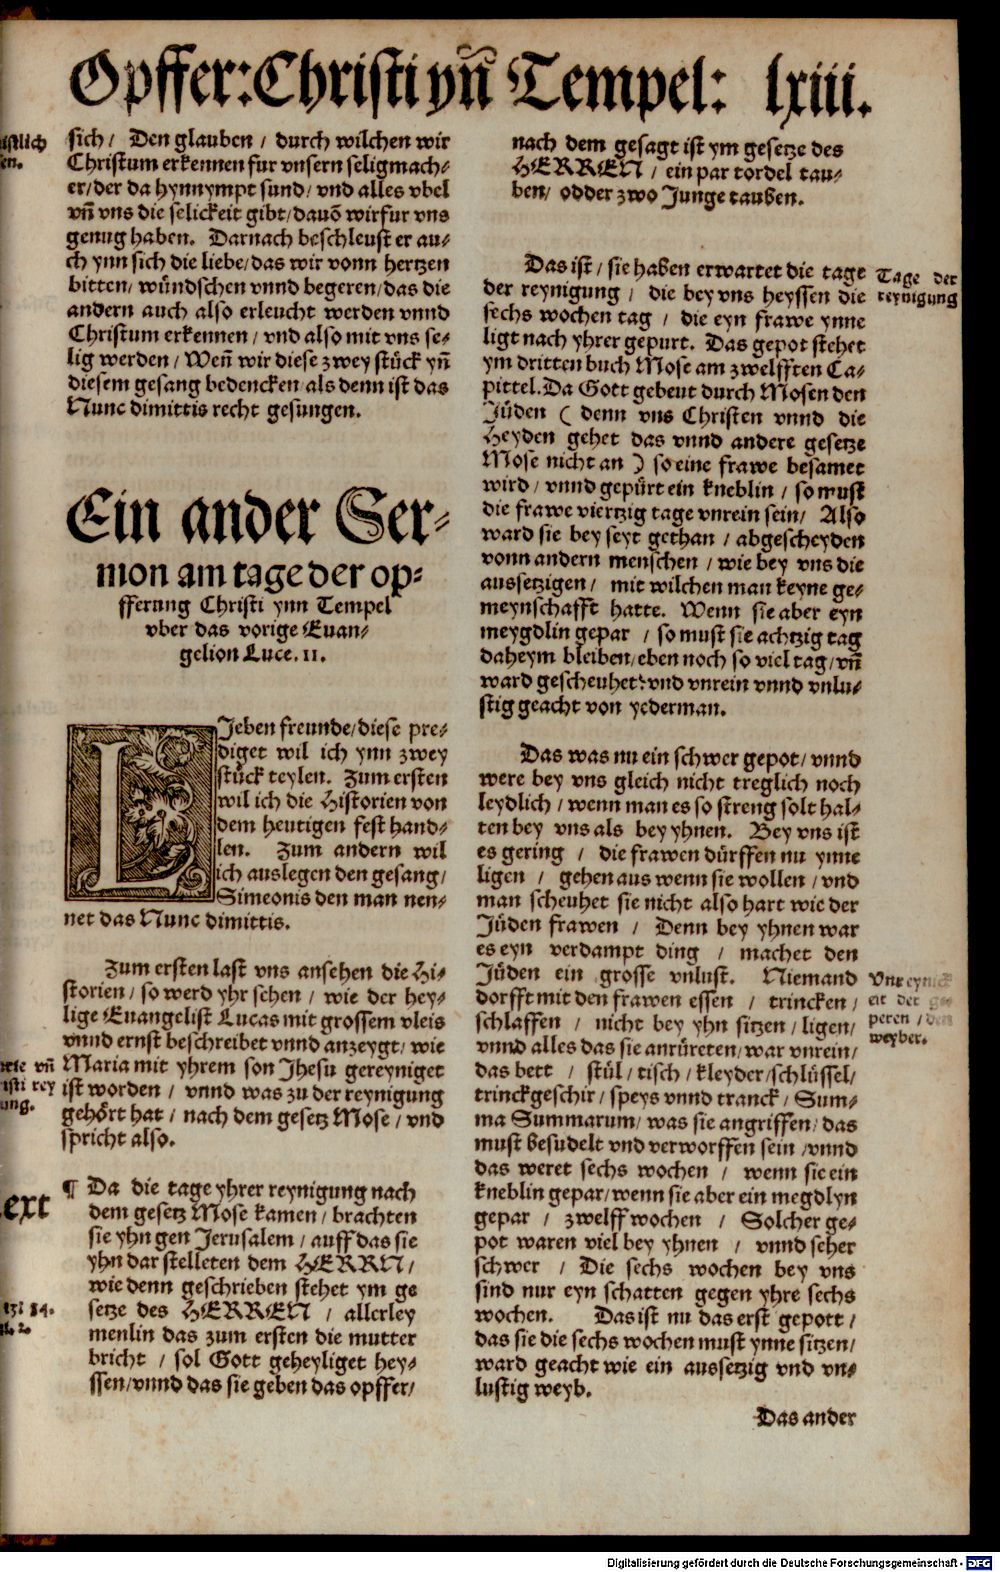 Opffer: Christi ynn̄ Tempel: lxiii.
sich / Den glauben / durch wilchen wir
Christum erkennen fur vnsern seligmach⸗
er / der da hynnympt sund / vnd alles vbel
vn̄ vns die selickeit gibt / dauō wir fur vns
genug haben. Darnach beschleust er au⸗
ch ynn sich die liebe / das wir vonn hertzen
bitten / wündschen vnnd begeren / das die
andern auch also erleucht werden vnnd
Christum erkennen / vnd also mit vns se⸗
lig werden / Wen̄ wir diese zwey stück yn̄
diesem gesang bedencken / als denn ist das
Nunc dimittis recht gesungen.
Ein ander Ser⸗
mon am tage der op⸗
fferung Christi ynn Tempel
vber das vorige Euan⸗
gelion Luce. II.
LJeben freunde / diese pre⸗
diget wil ich ynn zwey
stück teylen. Zum ersten
wil ich die Historien von
dem heutigen fest hand⸗
len. Zum andern wil
ich auslegen den gesang /
Simeonis den man nen⸗
net das Nunc dimittis.
Zum ersten last vns ansehen die Hi⸗
storien / so werd yhr sehen / wie der hey⸗
lige Euangelist Lucas mit grossem vleis
vnnd ernst beschreibet vnnd anzeygt / wie
vn̄ Maria mit yhrem son Jhesu gereyniget
rey ist worden / vnnd was zu der reynigung
ung. gehört hat / nach dem gesetz Mose / vnd
spricht also.
ext
¶ Da die tage yhrer reynigung nach
dem gesetz Mose kamen / brachten
sie yhn gen Jerusalem / auff das sie
yhn dar stelleten dem HERRN /
wie denn geschrieben stehet ym ge
setze des HERREN / allerley
menlin das zum ersten die mutter
bricht / sol Gott geheyliget hey⸗
ssen / vnnd das sie geben das opffer /
nach dem gesagt ist ym gesetze des
HERREN / ein par tordel tau⸗
ben / odder zwo Junge tauben.
Das ist / sie haben erwartet die tage
der reynigung / die bey vns heyssen die
sechs wochen tag / die eyn frawe ynne
ligt nach yhrer gepurt. Das gepot stehet
ym dritten buch Mose am zwelfften Ca⸗
pittel. Da Gott gebeut durch Mosen den
Jüden ( denn vns Christen vnnd die
Heyden gehet das vnnd andere gesetze
Mose nicht an ) so eine frawe besamet
wird / vnnd gepürt ein kneblin / so must
die frawe viertzig tage vnrein sein / Also
ward sie bey seyt gethan / abgescheyden
vonn andern menschen / wie bey vns die
aussetzigen / mit wilchen man keyne ge⸗
meynschafft hatte. Wenn sie aber eyn
meygdlin gepar / so must sie achtzig tag
daheym bleiben / eben noch so viel tag / vn̄
ward gescheuhet: vnd vnrein vnnd vnlu⸗
stig geacht von yederman.
Tage der
reynigung
Das was nu ein schwer gepot / vnnd
were bey vns gleich nicht treglich noch
leydlich / wenn man es so streng solt hal⸗
ten bey vns als bey yhnen. Bey vns ist
es gering / die frawen dürffen nu ynne
ligen / gehen aus wenn sie wollen / vnd
man scheuhet sie nicht also hart wie der
Jüden frawen / Denn bey yhnen war
es eyn verdampt ding / machet den
Jüden ein grosse vnlust. Niemand
dorfft mit den frawen essen / trincken /
schlaffen / nicht bey yhn sitzen / ligen /
vnnd alles das sie anrüreten / war vnrein /
das bett / stül / tisch / kleyder / schlüssel /
trinckgeschir / speys vnnd tranck / Sum⸗
ma Summarum / was sie angriffen / das
must besudelt vnd verworffen sein / vnnd
das weret sechs wochen / wenn sie ein
kneblin gepar / wenn sie aber ein megdlyn
gepar / zwelff wochen / Solcher ge⸗
pot waren viel bey yhnen / vnnd seher
schwer / Die sechs wochen bey vns
sind nur eyn schatten gegen yhre sechs
wochen. Das ist nu das erst gepott /
das sie die sechs wochen must ynne sitzen /
ward geacht wie ein aussetzig vnd vn⸗
lustig weyb.
eit der
peren / den
weyber.
Das ander
Digitalisierung gefördert durch die Deutsche Forschungsgemeinschaft - DFG